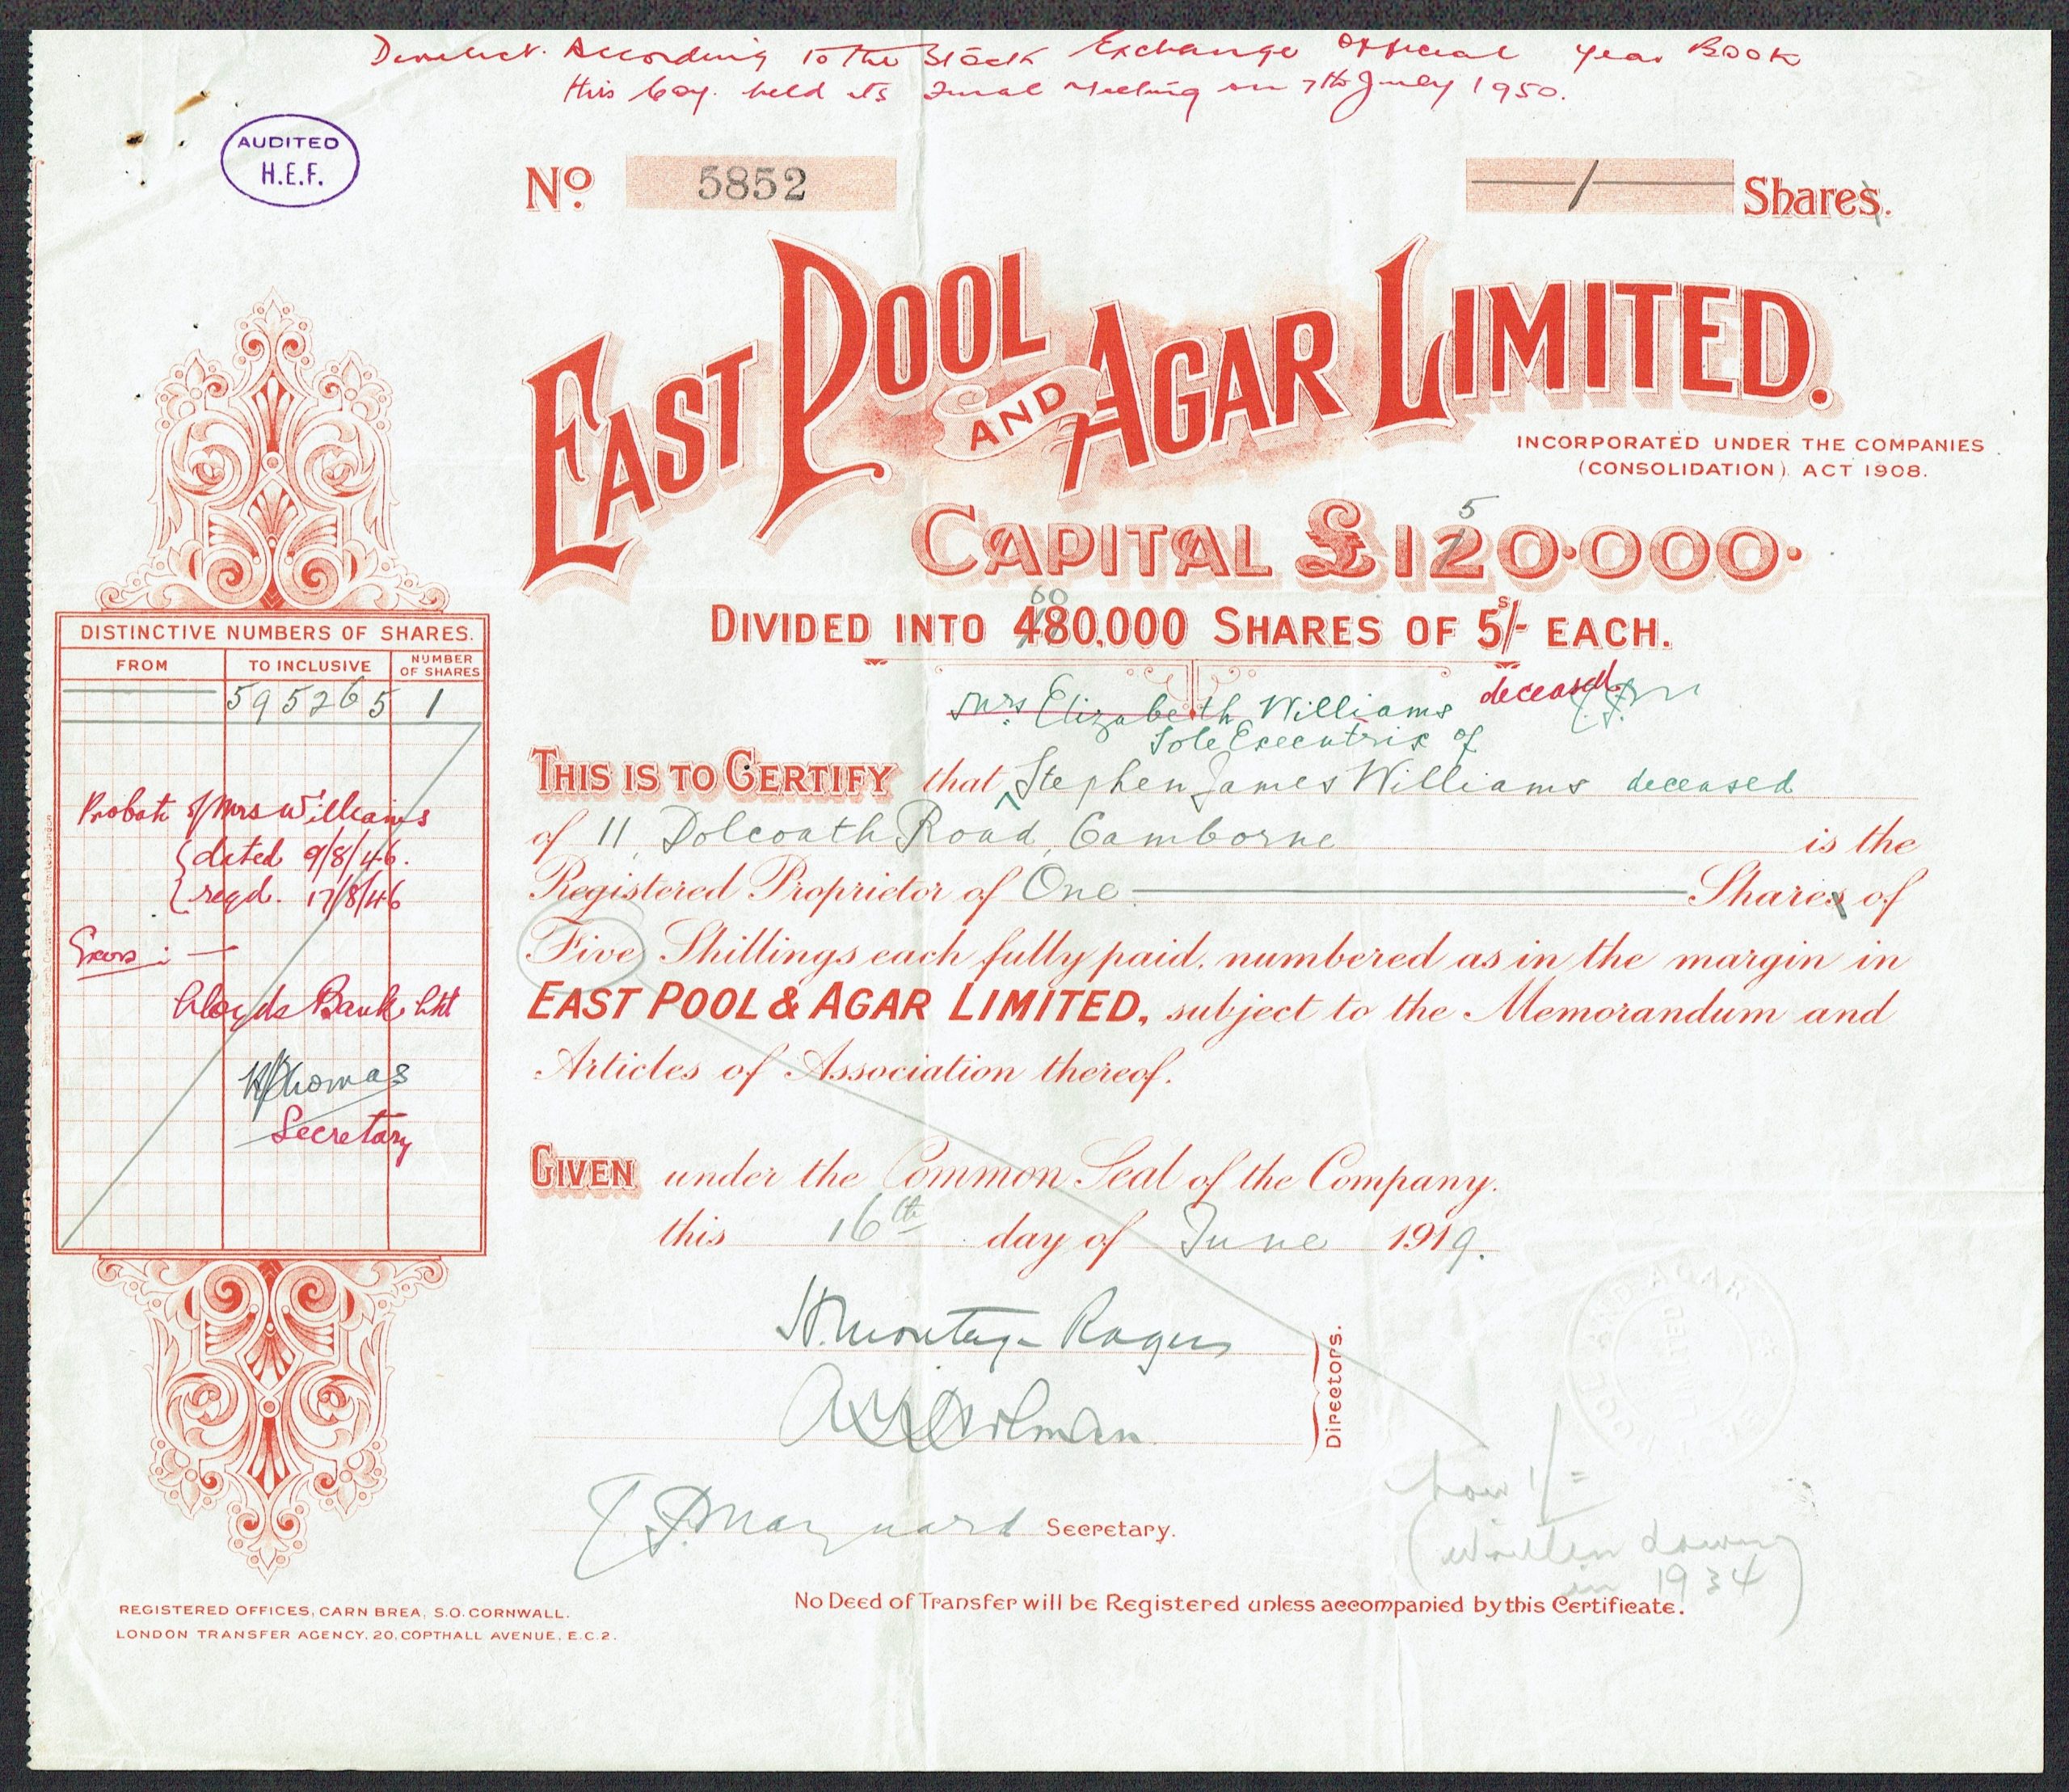 Derelict. According to the Stock Exchange Official Year Book
this Coy. held its Final Meeting on 7th July 1950.
AUDITED
H.E.F.
No. 5852
1 Shares.
EAST POOL AND AGAR LIMITED.
INCORPORATED UNDER THE COMPANIES
(CONSOLIDATION) ACT 1908.
5
CAPITAL £120.000.
60
DIVIDED INTO 480,000 SHARES OF 5s/- EACH.
DISTINCTIVE NUMBERS OF SHARES.
FROM TO INCLUSIVE NUMBER OF SHARES
595265 1
Probate of Mrs Williams
dated 9/8/46.
regd. 17/8/46
Exors :-
Lloyds Bank Ltd
Thomas
Secretary
Mrs. Elizabeth Williams deceased
Sole Executrix of
THIS IS TO CERTIFY that Stephen James Williams deceased
of 11, Dolcoath Road, Camborne is the
Registered Proprietor of One Shares of
Five Shillings each fully paid, numbered as in the margin in
EAST POOL & AGAR LIMITED, subject to the Memorandum and
Articles of Association thereof.
GIVEN under the Common Seal of the Company.
this 16th day of June 1919.
H. Montagu Rogers
Holman
Directors.
Maynard Secretary.
now 1/=
(written down
in 1934)
No Deed of Transfer will be Registered unless accompanied by this Certificate.
REGISTERED OFFICES, CARN BREA, S.O. CORNWALL.
LONDON TRANSFER AGENCY, 20, COPTHALL AVENUE, E.C.2.